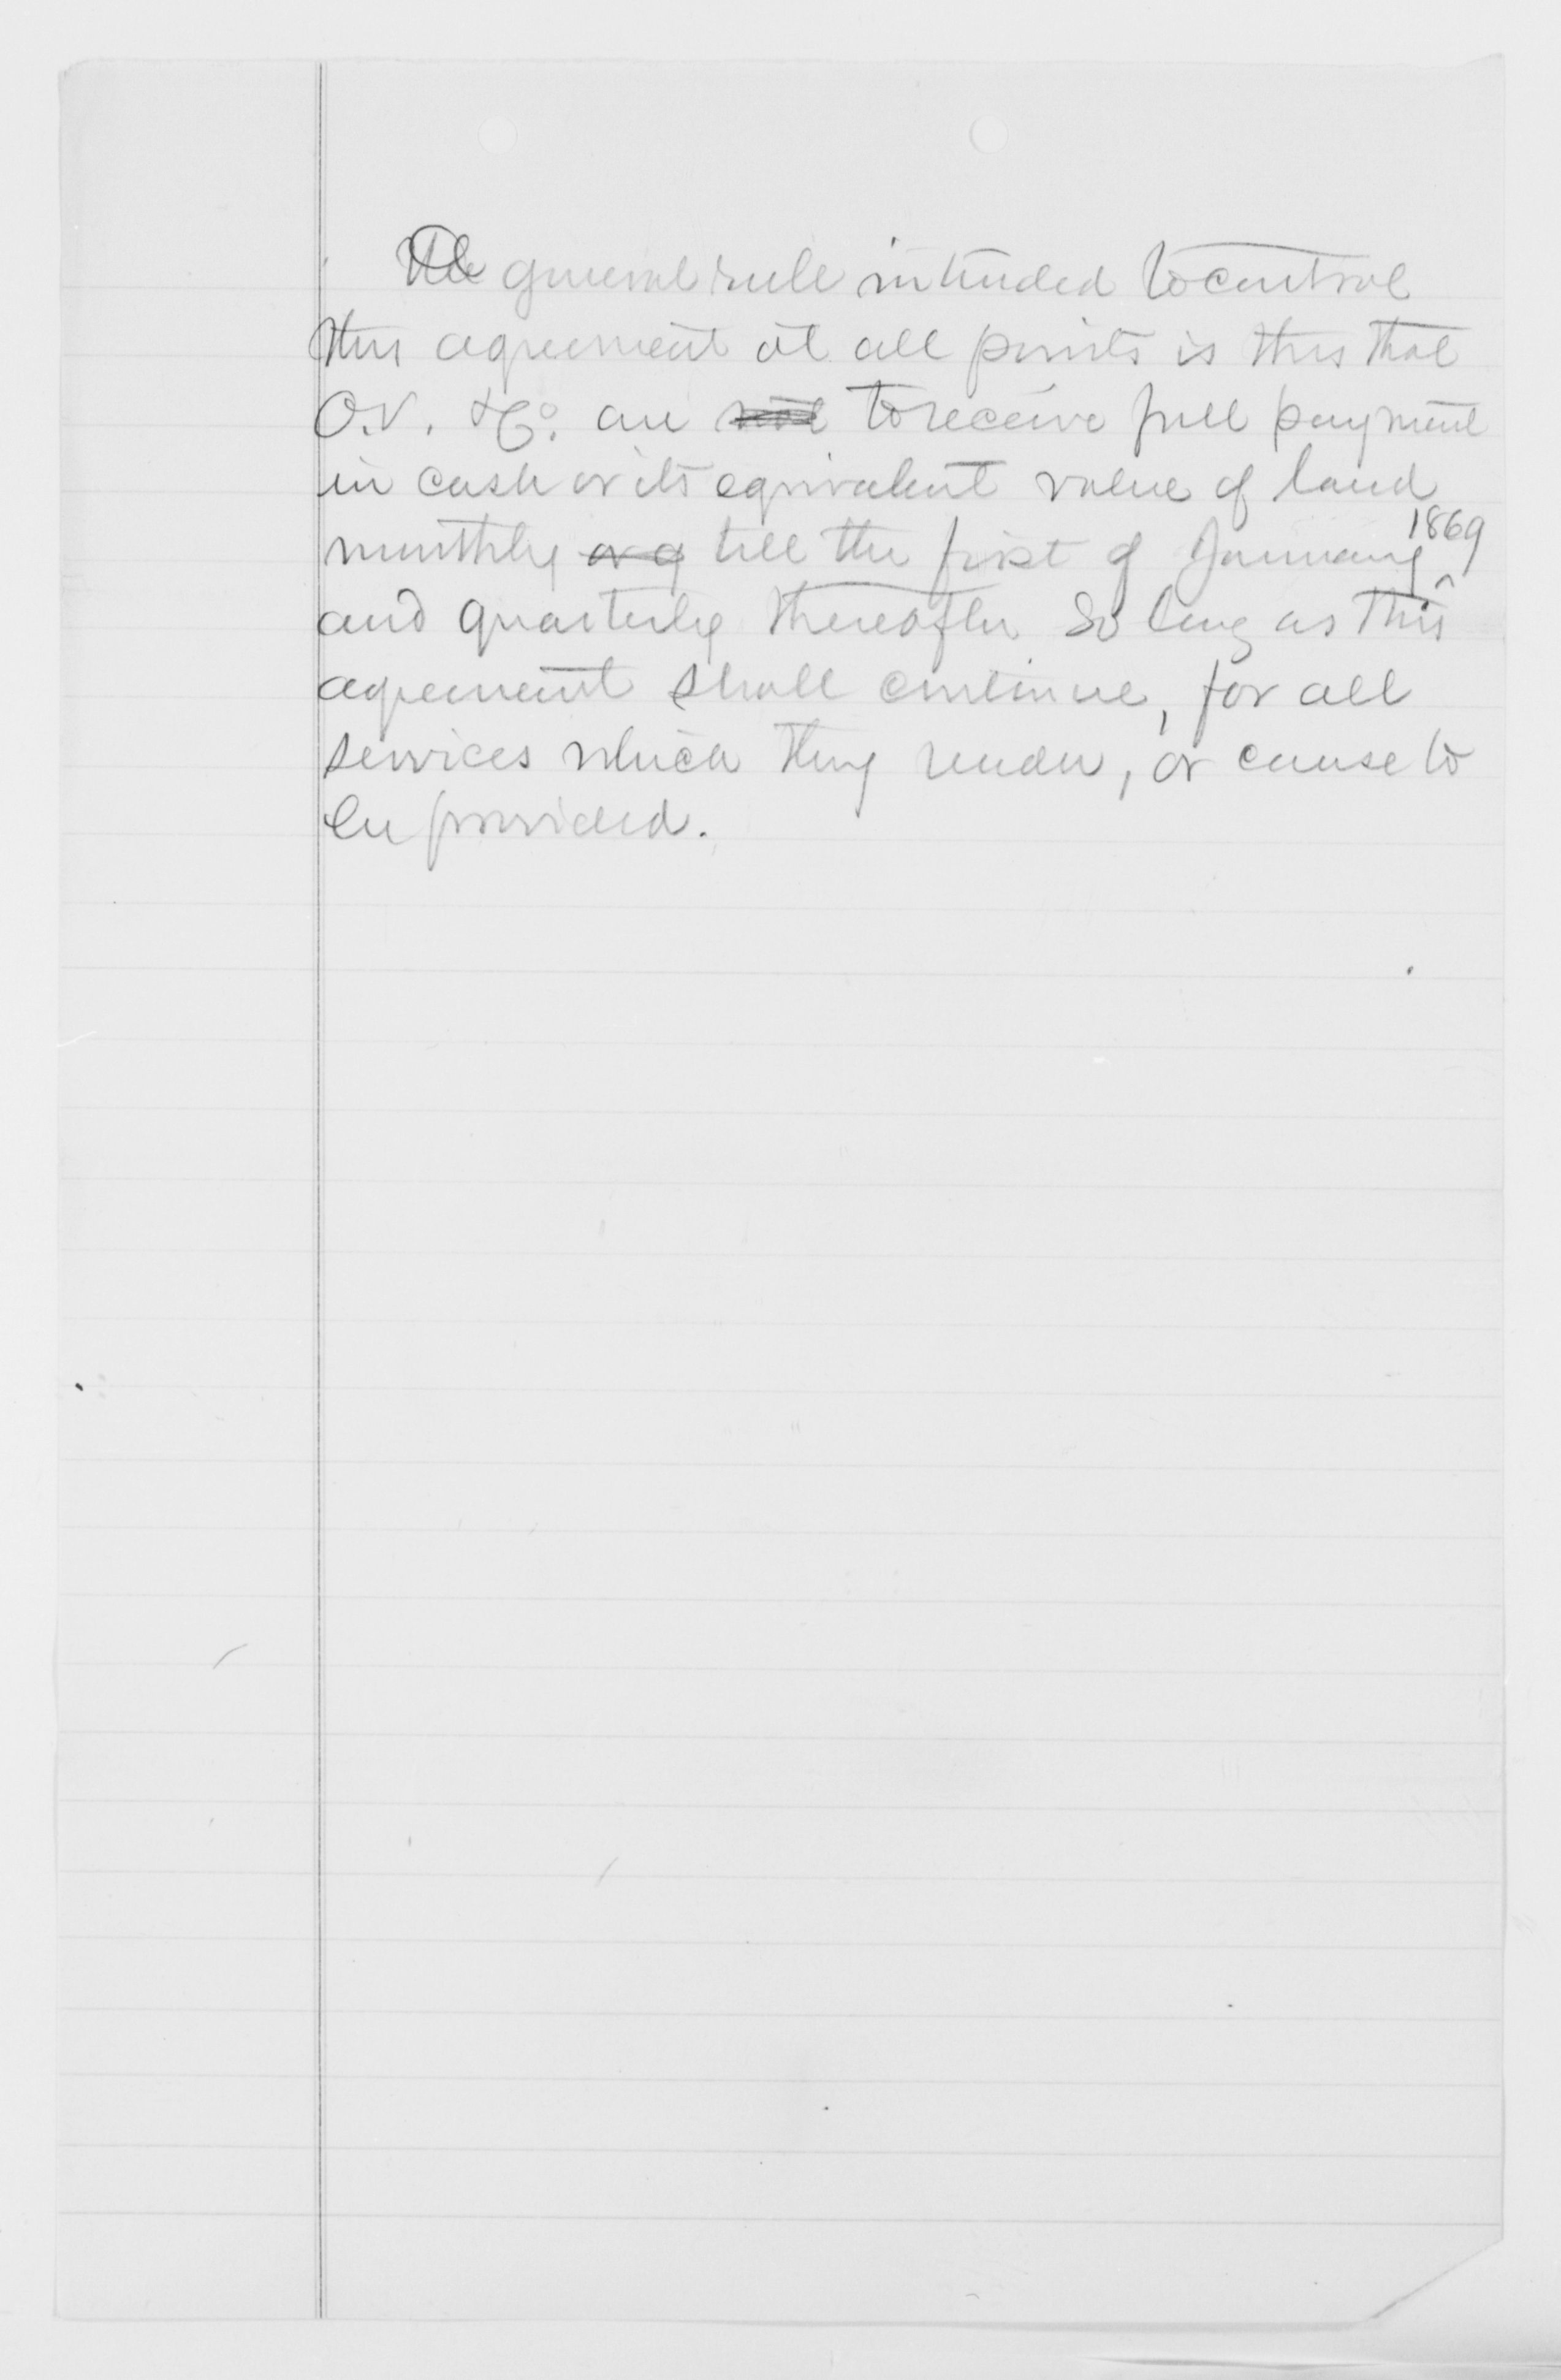 The general rule intended to control
this agreement at all points is this that
O.V. & Co. are not to receive full payment
in cash or its equivalent value of land
monthly or q till the first of January 1869
and quarterly thereafter so long as this
agreement shall continue, for all
services which they render, or cause to
be provided.